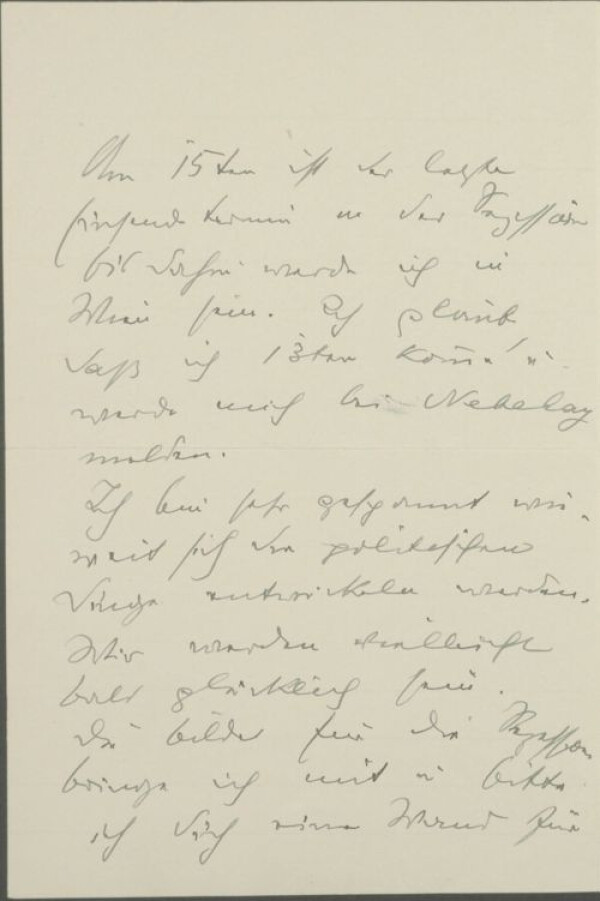 Am 15ten ist der letzte
Einsendetermin in der Sezession
bis dahin werde ich in
Wien sein. Ich glaube
daß ich 13ten komme u.
werde mich bei Nebehay
melden.
Ich bin sehr gespannt wie
weit sich die politischen
Dinge entwickeln werden.
Wir werden vielleicht
bald glücklich sein.
Die Bilder für die Sezession
bringe ich mit u. bitte
ich Dich eine Wand für